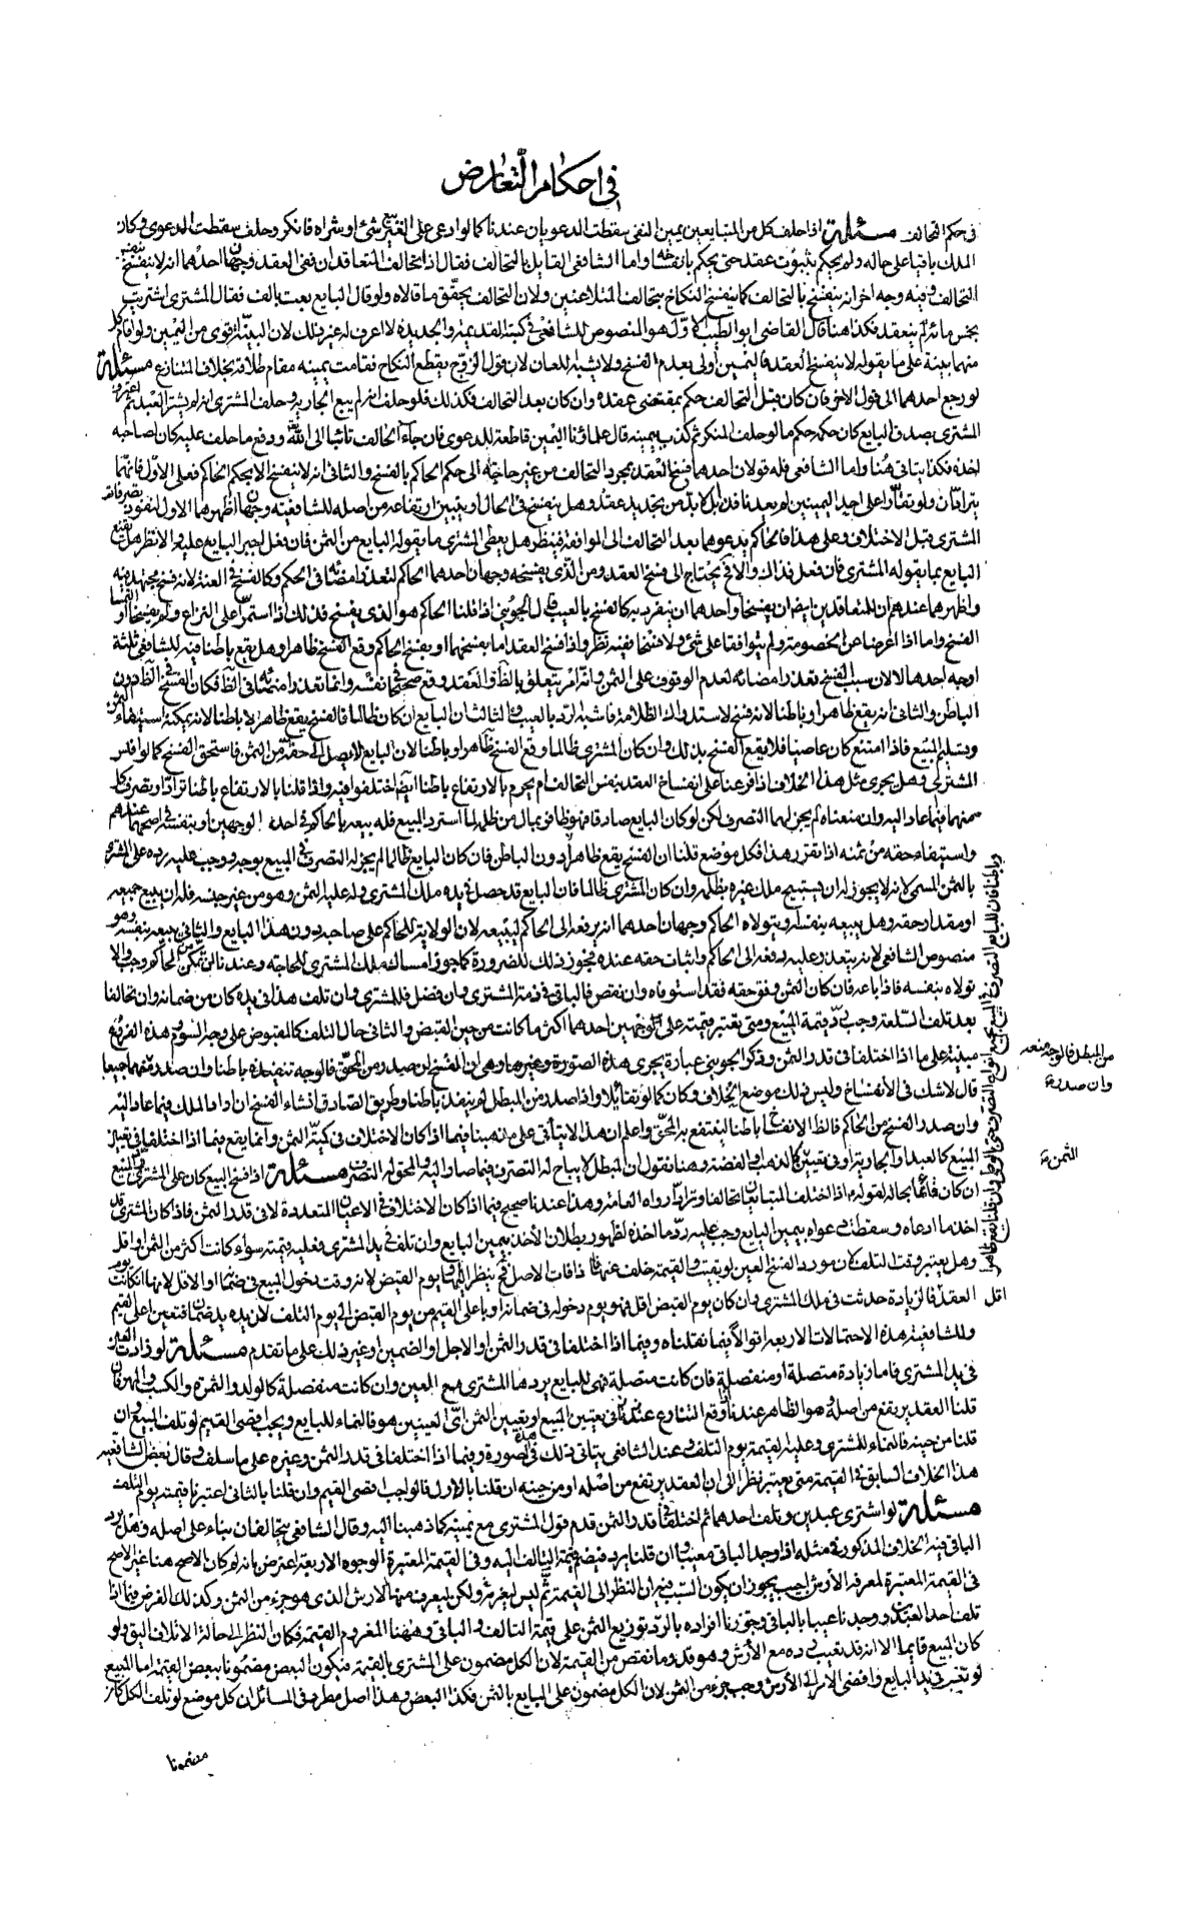 في احكام التعارض
في حكم التحالف مسئلة اذا حلف كل من المتبايعين يمين النفي سقطت الدعويان عندنا كما لو ادعى على الغير بيع شئ او شراه فانكر وحلف سقطت الدعوى وكان
الملك باقيا على حاله ولم يحكم بثبوت عقد حتى يحكم بانفساخه واما الشافعي القايل بالتحالف فقال اذا تحالف المتعاقدان ففي العقد وجهان احدهما انه لا ينفسخ بنفس
التحالف وفيه وجه اخر انه ينفسخ بالتحالف كما ينفسخ النكاح بتحالف المتلاعنين ولان التحالف يحقق ما قالاه ولو قال البايع بعت بالف فقال المشتري اشتريت
بخمسمائة لم ينعقد فكذا هنا قال القاضي ابو الطيب الاول هو المنصوص للشافعي في كتبه القديمة والجديدة لا اعرف له غير ذلك لان البينة اقوى من اليمين ولو اقام كل
منهما بينة على ما يقوله لا ينفسخ العقد فاليمين اولى بعدم الفسخ ولا يشبه اللعان لان قول الزوج يقطع النكاح فقامت يمينه مقام طلاقه بخلاف المتنازع مسئلة
لو رجع احدهما الى قول الاخر فان كان قبل التحالف حكم بمقتضى عقده وان كان بعد التحالف فكذلك فلو حلف انه لم يبع الجارية وحلف المشتري انه لم يشتر العبد ثم اعترف
المشتري بصدق البايع كان حكمه حكم ما لو حلف المنكر ثم كذب يمينه قال علماؤنا اليمين قاطعة للدعوى فان جاء الحالف تائبا الى الله ودفع ما حلف عليه كان لصاحبه
اخذه فكذا يتاتى هنا واما الشافعي فله قولان احدهما فسخ العقد بمجرد التحالف من غير حاجة الى حكم الحاكم بالفسخ والثاني انه لا ينفسخ الا بحكم الحاكم فعلى الاول فانهما
يترادان ولو تقارا على احد اليمينين لم يعد نافذا بل لا بد من تجديد عقد وهل ينفسخ في الحال او يتبين ارتفاعه من اصله للشافعية وجهان اظهرهما الاول لنفوذ تصرفات
المشتري قبل الاختلاف وعلى هذا فالحاكم يدعوهما بعد التحالف الى الموافقة فينظر هل يعطي المشتري ما يقوله البايع من الثمن فان فعل اجبر البايع عليه والا نظر هل يقنع
البايع بما يقوله المشتري فان فعل فذاك والا فيحتاج الى فسخ العقد ومن الذي يفسخه وجهان احدهما الحاكم لتعذر امضائه في الحكم وكالفسخ في العنة لانه فسخ مجتهد فيه
واظهرهما عندهم ان للمتعاقدين ايضا ان يفسخا ولاحدهما ان ينفرد به كالفسخ بالعيب قال الجويني اذا قلنا الحاكم هو الذي يفسخ فذلك اذا استمرا على النزاع ولم يفسخا او التمسا
الفسخ واما اذا اعرضا عن الخصومة ولم يتوافقا على شئ ولا فسخا ففيه نظر واذا فسخ العقد اما بفسخهما او بفسخ الحاكم وقع الفسخ ظاهرا وهل يقع باطنا فيه للشافعي ثلثة
اوجه احدها لا لان سبب الفسخ تعذر امضائه لعدم الوقوف على الثمن وانه امر يتعلق بالظاهر والعقد وقع صحيحا في نفسه وانما تعذر امضائه في الظاهر فكان الفسخ في الظاهر دون
الباطن والثاني انه يقع ظاهرا وباطنا لانه فسخ لاستدراك الظلامة فاشبه الرد بالعيب والثالث ان البايع ان كان ظالما فالفسخ يقع ظاهرا لا باطنا لانه يمكنه استيفاء الثمن
ويسلم المبيع فاذا امتنع كان عاصيا فلا يقع الفسخ بذلك وان كان المشتري ظالما وقع الفسخ ظاهرا وباطنا لان البايع لا يصل الى حقه من الثمن فاستحق الفسخ كما لو افلس
المشتري وهل يجري مثل هذا الخلاف اذا فرعنا على انفساخ العقد بنفس التحالف ام يجزم بالارتفاع باطنا ايضا اختلفوا فيه واذا قلنا بالارتفاع باطنا ترادا وتصرف كل
منهما فيما عاد اليه وان منعناه لم يجز لهما التصرف لكن لو كان البايع صادقا فهو ظافر بمال من ظلمه لما استرد المبيع فله بيعه بالحاكم في احد الوجهين او بنفسه في اصحهما عندهم
واستيفاء حقه من ثمنه اذا تقرر هذا فكل موضع قلنا ان الفسخ يقع ظاهرا دون الباطن فان كان البايع ظالما لم يجز له التصرف في المبيع بوجه ووجب عليه رده على المشتري
بالثمن المسمى لانه لا يجوز له ان يستبيح ملك غيره بظلمه وان كان المشتري ظالما فان البايع قد حصل في يده ملك المشتري وله عليه الثمن وهو من غير جنسه فله ان يبيع جميعه
او مقدار حقه وهل يبيعه بنفسه او يتولاه الحاكم وجهان احدهما انه يرفعه الى الحاكم ليبيعه لان الولاية للحاكم على صاحبه دون هذا البايع والثاني يبيعه بنفسه وهو
منصوص الشافعي لانه يتعذر عليه رفعه الى الحاكم واثبات حقه عنده فجوز ذلك للضرورة كما جوز امساك ملك المشتري للحاجة وعندنا ان تمكن من الحاكم وجب والا
تولاه بنفسه فاذا باعه فان كان الثمن وفق حقه فقد استوفاه وان نقص فالباقي في ذمة المشتري وان فضل فللمشتري وان تلف هذا في يده كان من ضمانه وان تحالفا
بعد تلف السلعة وجب رد قيمة المبيع ومتى يعتبر قيمته على الوجهين احدهما اكثر ما كانت من حين القبض والثاني حال التلف كالمقبوض على وجه السوم هذه الفروع
مبنية على ما اذا اختلفا في قدر الثمن وذكر الجويني عبارة يجري هذه الصورة وغيرها وهي ان الفسخ ان صدر من المحق فالوجه تنفيذه باطنا وان صدر منهما جميعا
قال لا شك في الانفساخ وليس ذلك موضع الخلاف وكان كما لو تقايلا واذا صدر من المبطل لم ينفذ باطنا وطريق الصادق انشاء الفسخ ان اراد الملك فيما عاد اليه
وان صدر الفسخ من الحاكم فالظاهر الانفساخ باطنا لينتفع به المحق واعلم ان هذا لا يتأتى على مذهبنا فيما اذا كان الاختلاف في كمية الثمن وانما يقع فيما اذا اختلفا في تعيين
المبيع كالعبد او الجارية او في تعيين كالذهب والفضة وهنا نقول ان المبطل لا يباح له التصرف فيما صار اليه والمحق له التصرف مسئلة اذا فسخ البيع كان على المشتري رد المبيع
ان كان قائما بحاله لقوله اذا اختلف المتبايعان تحالفا وترادا رواه العامة وهذا عندنا صحيح فيما اذا كان الاختلاف في الاعيان المتعددة لا في قدر الثمن فاذا كان المشتري قد
اخذ ما ادعاه وسقطت دعواه بيمين البايع وجب عليه رد ما اخذه لظهور بطلان الأخذ بيمين البايع وان تلف في يد المشتري فعليه قيمته سواء كانت اكثر من الثمن او اقل
وهل يعتبر وقت التلف لان مورد الفسخ العين لو بقيت والقيمة خلف عنها فاذا فات الاصل ح ينظر اليها او يوم القبض لانه وقت دخول المبيع في ضمانه او الاقل لانها ان كانت يوم
العقد اقل فالزيادة حدثت في ملك المشتري وان كان يوم القبض اقل فهو يوم دخوله في ضمانه او باعلى القيم من يوم القبض الى يوم التلف لان يده يد ضمان فتعين اعلى القيم
وللشافعية هذه الاحتمالات الاربعة اقوالا فيما نقلناه وفيما اذا اختلفا في قدر الثمن او الاجل او الضمين او غير ذلك على ما تقدم مسئلة لو زادت العين
في يد المشتري فاما زيادة متصلة او منفصلة فان كانت متصلة فهي للبايع يردها المشتري مع العين وان كانت منفصلة كالولد والثمرة والكسب والمهر فان
قلنا العقد يرتفع من اصله وهو الظاهر عندنا ان وقع التنازع عندنا في تعيين المبيع او تعيين الثمن اي العينين هو فالنماء للبايع ويجب اقصى القيم لو تلف المبيع وان
قلنا من حينه فالنماء للمشتري وعليه القيمة يوم التلف وعند الشافعي يتاتى ذلك في هذه الصورة وفيما اذا اختلفا في قدر الثمن وغيره على ما سلف وقال بعض الشافعية
هذا الخلاف السابق في القيمة متى يعتبر نظرا الى ان العقد يرتفع من اصله او من حينه ان قلنا بالاول فالواجب اقصى القيم وان قلنا بالثاني اعتبرنا قيمته يوم التلف
مسئلة لو اشترى عبدين وتلف احدهما ثم اختلفا في قدر الثمن قدم قول المشتري مع يمينه كما ذهبنا اليه وقال الشافعي يتحالفان بناء على اصله وهل يرد
الباقي فيه الخلاف المذكور في مثله اذا وجد الباقي معيبا وان قلنا يرد فيضم قيمة التالف اليه وفي القيمة المعتبرة الوجوه الاربعة اعترض بانه لم كان الاصح هنا غير الاصح
في القيمة المعتبرة لمعرفة الأرش اجيب يجوز ان يكون السبب فيه ان النظر الى القيمة ثم ليس ليغرم ولكن ليعرف منها الارش الذي هو جزء من الثمن وكذلك الفرض فيما اذا
تلف احد العبدين ووجدنا عيبا بالباقي وجوزنا افراده بالرد توزيع الثمن على قيمة التالف والباقي وههنا المغروم القيمة فكان النظر الى حالة الاتلاف اليق ولو
كان المبيع قايما الا انه قد تعيب رده مع الأرش وهو قدر ما نقص من القيمة لان الكل مضمون على المشتري بالقيمة فيكون البعض مضمونا ببعض القيمة اما المبيع
لو تعيب في يد البايع وافضى الامر الى الأرش وجب جزء من الثمن لان الكل مضمون على البايع بالثمن فكذا البعض وهذا اصل مطرد في المسائل ان كل موضع لو تلف الكل كان
مضمونا
من المبطل فالوجه منعه
وان صدر
الثمن